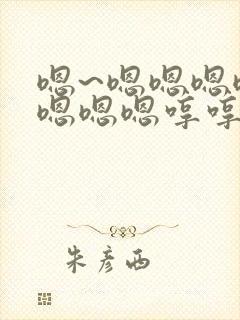 嗯~嗯嗯嗯
嗯嗯嗯哼哼
朱彦西